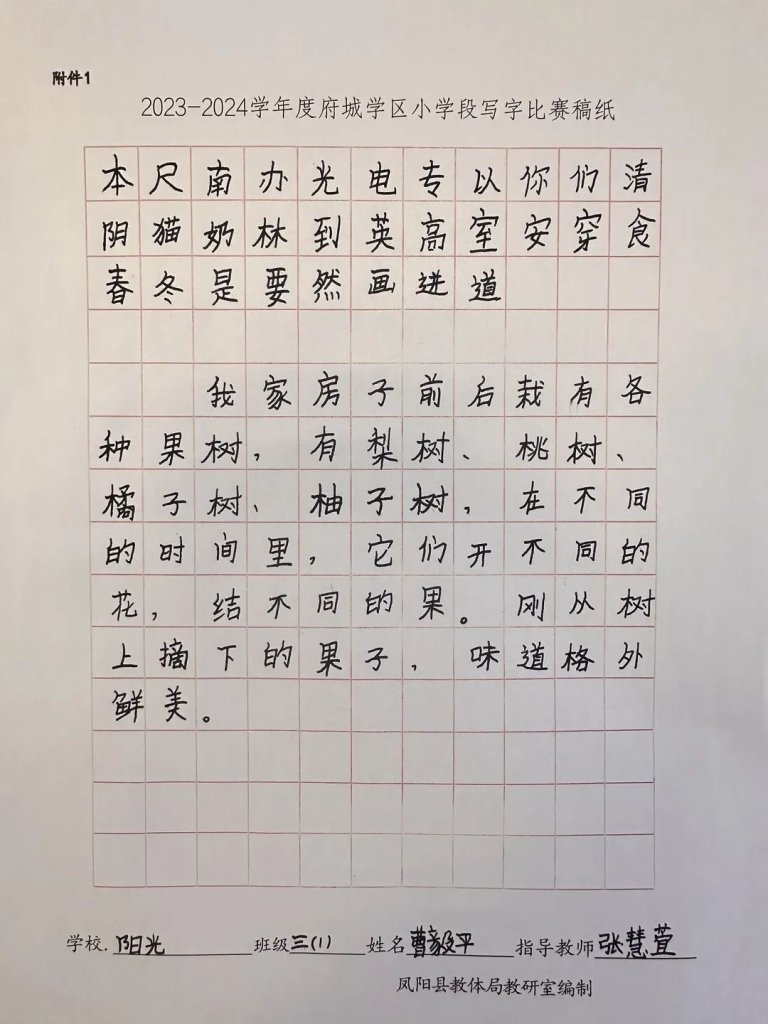 附件1
2023-2024学年度府城学区小学段写字比赛稿纸
本尺南办光电专以你们清
阴猫奶林到英高室安穿食
春冬是要然画进道
我家房子前后栽有各
种果树，有梨树、桃树、
橘子树、柚子树，在不同
的时间里，它们开不同的
花，结不同的果。刚从树
上摘下的果子，味道格外
鲜美。
学校.阳光 班级三(1) 姓名曹毅平 指导教师张慧萱
凤阳县教体局教研室编制